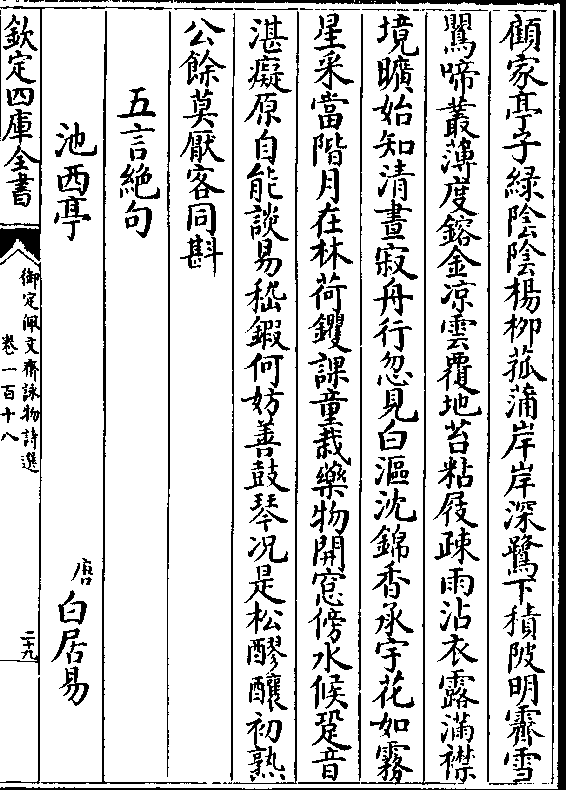 顧家亭子緑陰陰楊栁菰蒲岸岸深鷺下積陂明霽雪
鸎啼叢薄度鎔金凉雲覆地苔粘屐疎雨沾衣露滿襟
境曠始知清晝寂舟行忽見白漚沈錦香承宇花如霧
星采當階月在林荷钁課童栽藥物開窓傍水候跫音
湛癡原自能談易嵇鍜何妨善鼓琴况是松醪釀初熟
公餘莫厭客同斟
五言絶句
池西亭
唐白居易
欽定四庫全書
御定佩文齋詠物詩選
卷一百十八
二十九